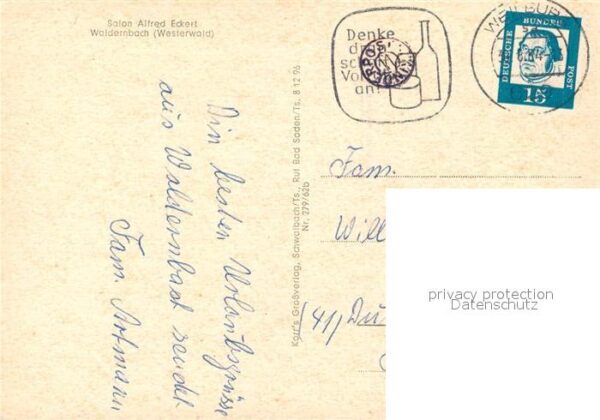 Salon Alfred Eckert
Waldernbach (Westerwald)
Die besten Urlaubsgrüsse
aus Waldernbach sendet
Fam. Artmann
Korr's Großverlag, Schwalbach/Ts., Ruf Bad Soden/Ts., 8 12 96
Nr. 279/62b
Denke
an!
WEILBURG
DEUTSCHE BUNDESPOST
15
Fam.
Will
(41) Du
privacy protection
Datenschutz